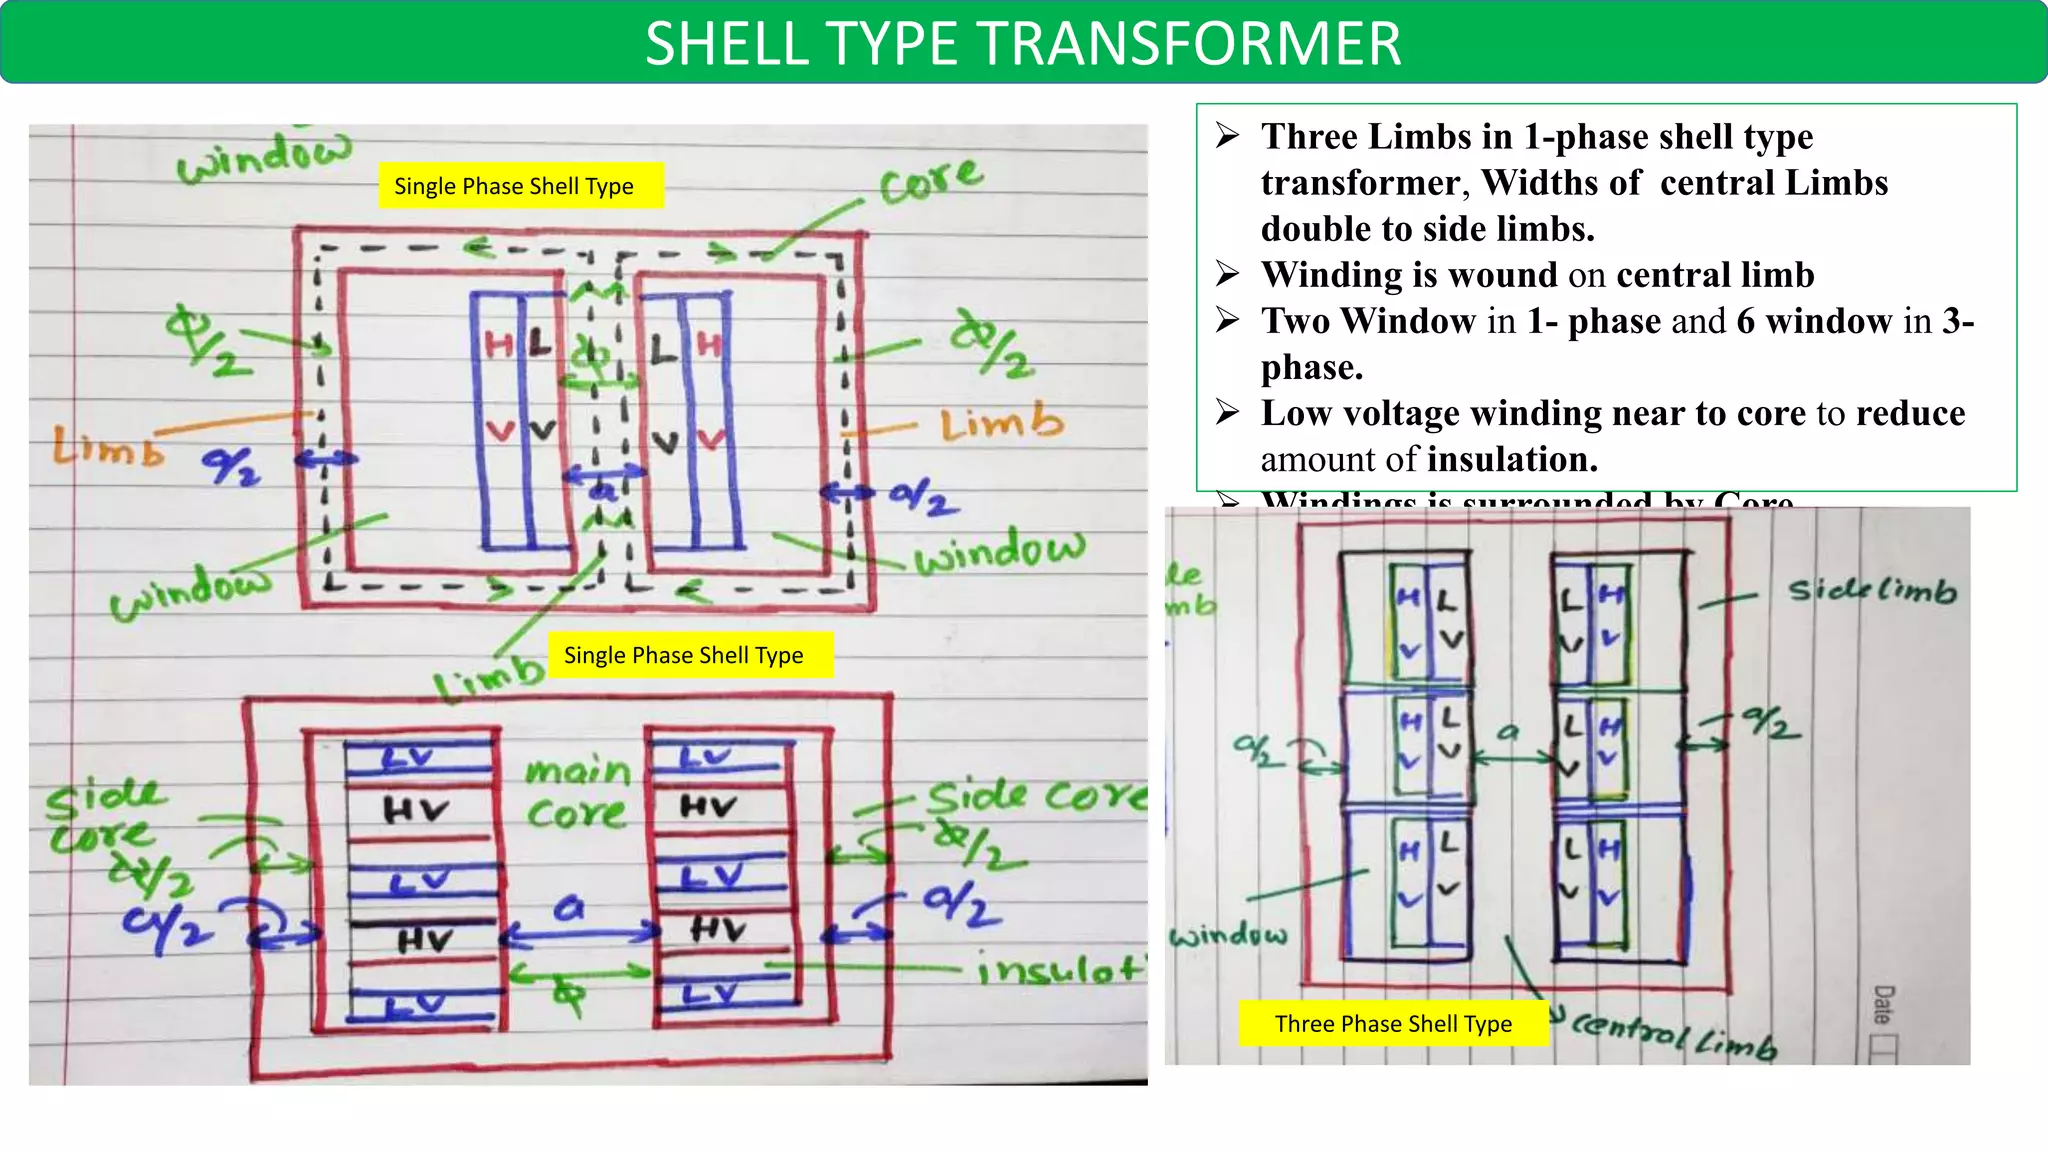 SHELL TYPE TRANSFORMER
window
Single Phase Shell Type
core
ϕ/2
H L
ϕ
L H
ϕ/2
V V
V V
Limb
Limb
a/2
a
a/2
window
window
Limb
Single Phase Shell Type
LV
main
core
LV
side
core
HV
HV
side core
ϕ/2
ϕ/2
LV
LV
a/2
a
a/2
HV
HV
ϕ
insulati
LV
LV
➢ Three Limbs in 1-phase shell type
transformer, Widths of central Limbs
double to side limbs.
➢ Winding is wound on central limb
➢ Two Window in 1- phase and 6 window in 3-
phase.
➢ Low voltage winding near to core to reduce
amount of insulation.
➢ Windings is surrounded by Core
H L
L H
side limb
mb
V V
V V
H L
L H
a/2
a
a/2
V V
V V
H L
L H
V V
V V
window
Three Phase Shell Type
central Limb
Date